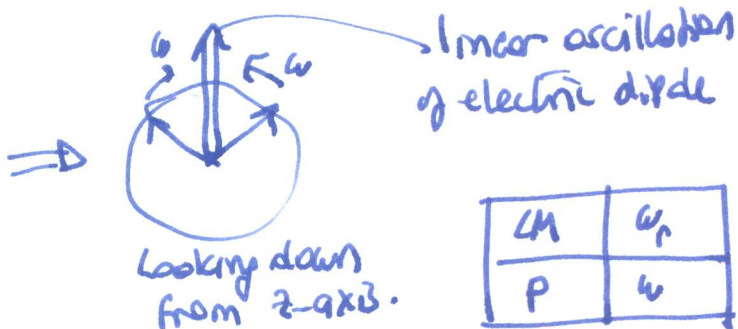 ω
ω
linear oscillation
of electric dipole
Looking down
from z-axis.
P ω